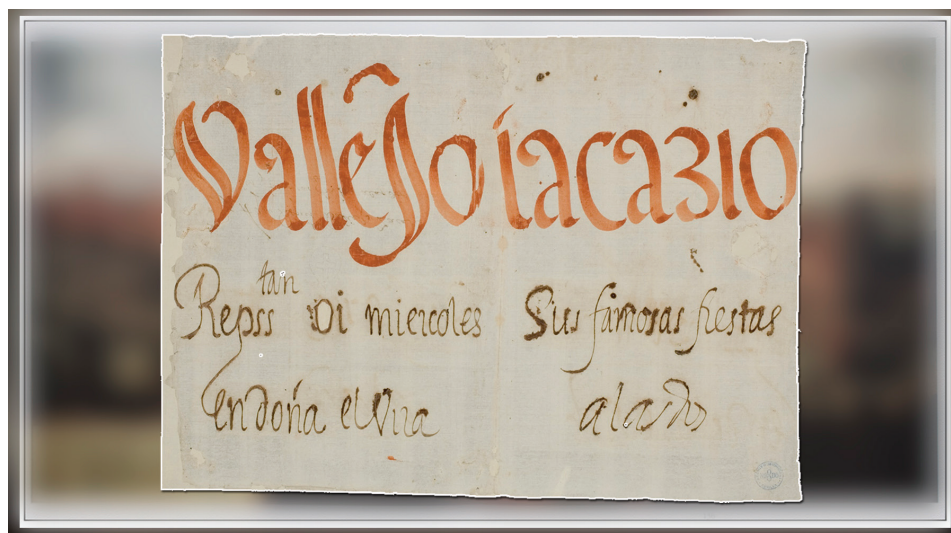 Vallejo iacazio
tan
Repss oi miercoles Sus famosas fiestas
en doña elVira a las dos